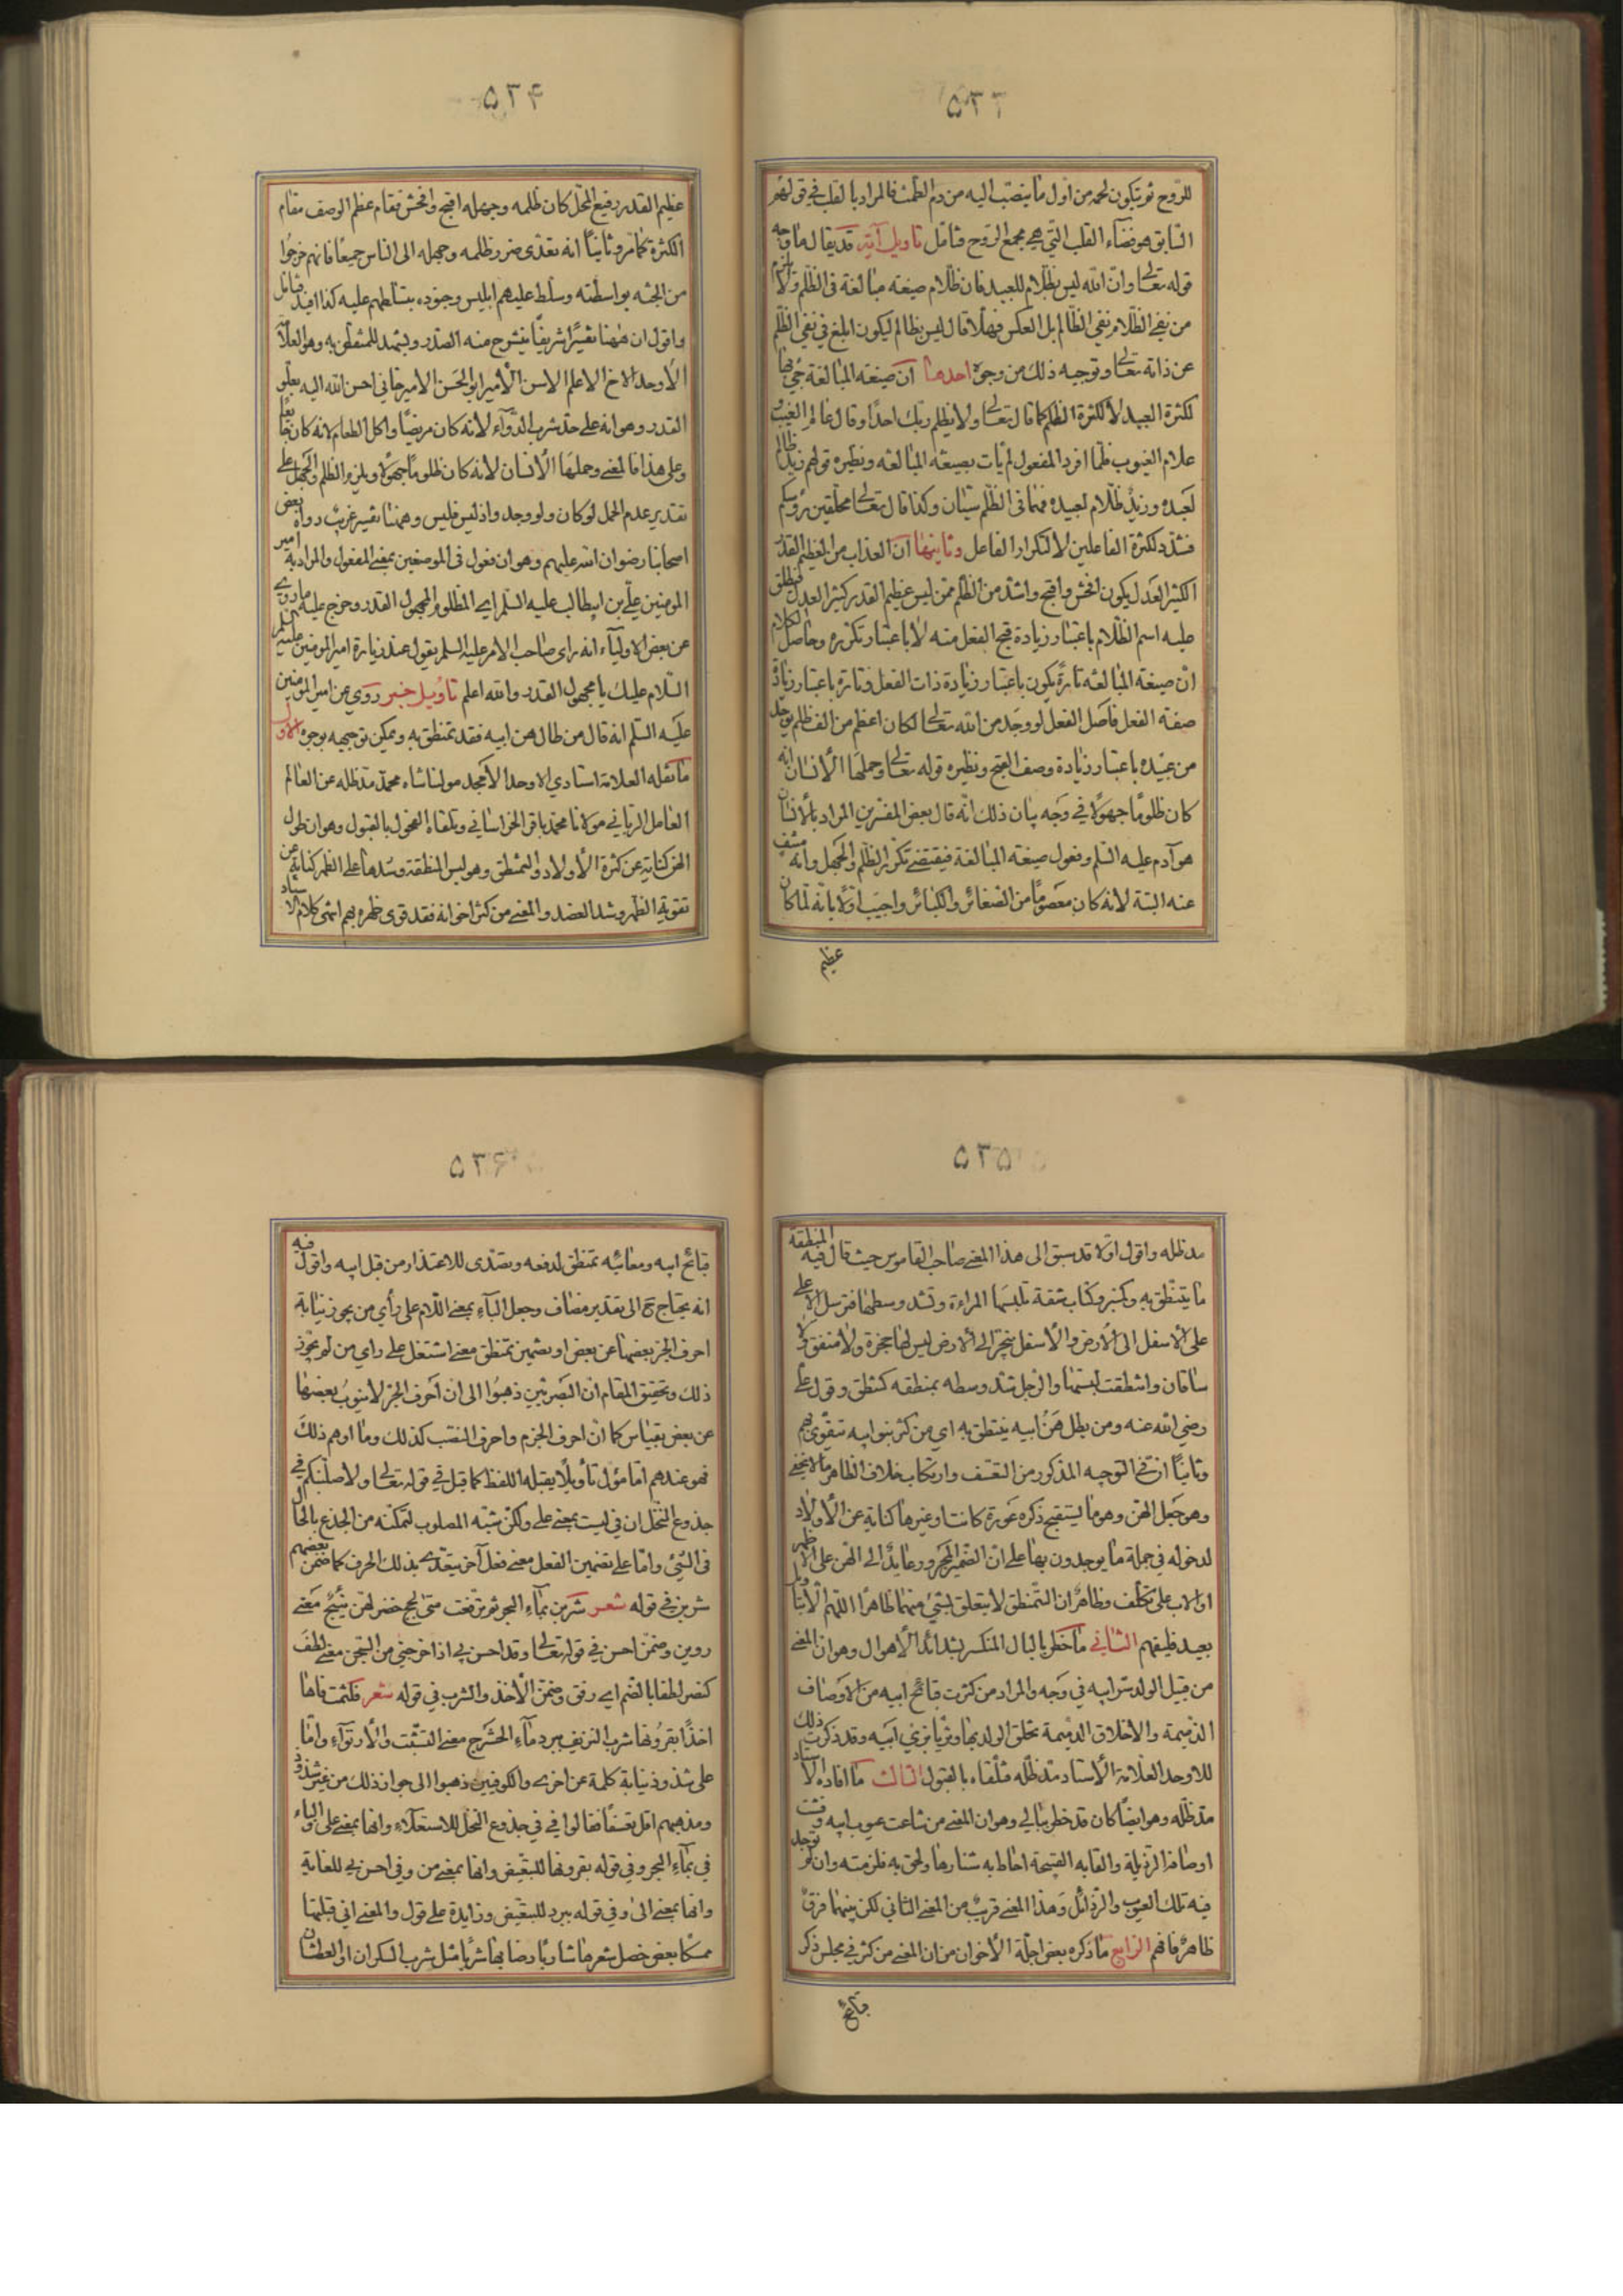 ۵۳۳
للروح ثم يتكون لحمه من اول ما ينصب اليه من دم الطمث فالمراد بالقلب في قولهم
السابق هو فضاء القلب التي هي مجمع الروح فتامل تاويل آية قد يقال ما وجه
قوله تعالى وان الله ليس بظلام للعبيد فان ظلام صيغة مبالغة في الظلم ولا يلزم
من نفي الظلام نفي الظالم بل العكس فهلا قال ليس بظالم ليكون ابلغ في نفي الظلم
عن ذاته تعالى وتوجيه ذلك من وجوه احدها ان صيغة المبالغة جئ بها
لكثرة العبيد لا لكثرة الظلم كما قال تعالى ولا يظلم ربك احدا وقال عالم الغيب و
علام الغيوب فلما افرد المفعول لم يات بصيغة المبالغة ونظيره قولهم زيد ظالم
لعبده وزيد ظلام لعبيده فهما في الظلم سيان وكذا قال تعالى محلقين رؤسكم
فشدد لكثرة الفاعلين لا لتكرار الفاعل وثانيها ان العذاب من العظيم القدر
الكثير العدل يكون افحش واقبح واشد من الظلم ممن ليس عظيم القدر كثير العدل فيطلق
عليه اسم الظلام باعتبار زيادة قبح الفعل منه لا باعتبار تكرره وحاصل الكلام
ان صيغة المبالغة تارة يكون باعتبار زيادة ذات الفعل وتارة باعتبار زيادة
صفة الفعل فاصل الفعل لو وجد من الله تعالى لكان اعظم من الف ظلم يوجد
من عبيده باعتبار زيادة وصف القبح ونظيره قوله تعالى وحملها الانسان انه
كان ظلوما جهولا في وجه بيان ذلك انه قال بعض المفسرين المراد بالانسان
هو آدم عليه السلم وفعول صيغة المبالغة فيقتضي تكرر الظلم والجهل وانه منتف
عنه البتة لانه كان معصوما من الصغائر والكبائر واجيب اولا بانه لما كان
عظيم
۵۳۴
عظيم القدر رفيع المحل كان ظلمه وجهله اقبح وافحش فقام عظم الوصف مقام
الكثرة كما مر وثانيا انه تعدى ضرر ظلمه وجهله الى الناس جميعا فانهم خرجوا
من الجنة بواسطته وسلط عليهم ابليس وجنوده بتسلطهم عليه كذا افيد فتامل
واقول ان ههنا تفسيرا شريفا ينشرح منه الصدر وهو العلامة
الاوحد الاخ الاعلم الامير ابو الحسن الامير جاني احسن الله اليه بعلو
القدر وهو انه على حد شرب الدواء لانه كان مريضا واكل الطعام لانه كان جايعا
وعلى هذا فالمعنى وحملها الانسان لانه كان ظلوما جهولا ويلزم الظلم والجهل على
تقدير عدم الحمل لو كان ولو وجد واذ ليس فليس وههنا تفسير غريب رواه بعض
اصحابنا رضوان الله عليهم وهو ان فعول في الموضعين بمعنى المفعول والمراد به امير
المومنين علي بن ابيطالب عليه السلم اي المظلوم المجهول القدر وخرج عليه ما روى
عن بعض الاولياء انه راى صاحب الامر عليه السلم يقول عند زيارة امير المومنين عليه السلم
السلام عليك يا مجهول القدر والله اعلم تاويل خبر روي عن امير المومنين
عليه السلم انه قال من طال هن ابيه فقد تمنطق به ويمكن توجيهه بوجوه الاول
ما نقله العلامة استادي الاوحد الامجد مولنا شاه محمد مد ظله عن العالم
الفاضل الرباني مولانا محمد باقر الخراساني وتلقاه الفحول بالقبول وهو ان طول
الهن كناية عن كثرة الاولاد والتمنطق وهو لبس المنطقة وشدها على الظهر كناية عن
تقوية الظهر وشد العضد والمعنى من كثر اخوانه فقد قوى ظهره بهم انتهى كلام الاستاد
۵۳۵
مد ظله واقول اولا قد سبق الى هذا المعنى صاحب القاموس حيث قال فيه المنطقة
ما يتنطق به وكمنبر وكتاب شقة تلبسها المراءة وتشد وسطها فترسل الاعلى
على الاسفل الى الارض والاسفل ينجر الى الارض ليس لها حجزة ولا نيفق ولا
ساقان وانتطقت لبستها والرجل شد وسطه بمنطقة كتنطق وقول علي
رضي الله عنه ومن يطل هن ابيه ينتطق به اي من كثر بنو ابيه يتقوى بهم
وثانيا ان في التوجيه المذكور من التعسف وارتكاب خلاف الظاهر ما لا يخفى
وهو جعل الهن وهو ما يستقبح ذكره عورة كانت او غيرها كناية عن الاولاد
لدخوله في جملة ما يوجدون بها على ان الضمير المجرور عايد الى الهن على الاظهر
او الاب على تكلف وظاهر ان التمنطق لا يتعلق بشئ منهما ظاهرا اللهم الا بتاويل
بعيد فليفهم الثاني ما خطر بالبال المنكسر بشدائد الاهوال وهو ان المعنى
من قبيل الولد سر ابيه في وجه والمراد من كثرت قبائح ابيه من الاوصاف
الذميمة والاخلاق الدميمة تخلق الولد بها وتزيا بزي ابيه وقد ذكرت ذلك
للاوحد العلامة الاستاد مد ظله فتلقاه بالقبول الثالث ما افاده الاستاد
مد ظله وهو ايضا كان قد خطر ببالي وهو ان المعنى من شاعت عيوب ابيه وفشت
اوصافه الرذيلة والقابه القبيحة احاط به شنارها ولحق به فلزمته وان لم توجد
فيه تلك العيوب والرذائل وهذا المعنى قريب من المعنى الثاني لكن بينهما فرق
ظاهر فافهم الرابع ما ذكره بعض اجلة الاخوان من ان المعنى من كثر في مجلس ذكر
قبائح
۵۳۶
قبائح ابيه ومعائبه تمنطق لدفعه وتصدى للاعتذار من قبل ابيه واقول فيه
انه يحتاج ح الى تقدير مضاف وجعل الباء بمعنى اللام على رأي من يجوز نيابة
احرف الجر بعضها عن بعض او تضمين تمنطق معنى اشتغل على راي من لم يجوز
ذلك وتحقيق المقام ان البصريين ذهبوا الى ان احرف الجر لا ينوب بعضها
عن بعض بقياس كما ان احرف الجزم واحرف النصب كذلك وما اوهم ذلك
فهو عندهم اما مؤل تأويلا يقبله اللفظ كما قيل في قوله تعالى ولاصلبنكم في
جذوع النخل ان في ليست بمعنى على ولكن شبه المصلوب لتمكنه من الجذع بالحال
في الشئ واما على تضمين الفعل معنى فعل آخر يتعدى بذلك الحرف كما ضمن بعضهم
شربن في قوله شعر شربن بماء البحر ثم ترفعت متى لجج خضر لهن نئيج معنى
روين وضمن احسن في قوله تعالى وقد احسن بي اذ اخرجني من السجن معنى لطف
كنصر لطفا بالضم اي رفق وضمن الاخذ والشرب في قوله شعر فلثمت فاها
اخذا بقرونها شرب النزيف ببرد ماء الحشرج معنى التشبث والارتواء واما
على شذوذ نيابة كلمة عن اخرى والكوفيين ذهبوا الى جواز ذلك من غير شذوذ
ومذهبهم اقل تعسفا فقالوا في في جذوع النخل للاستعلاء وانها بمعنى على والباء
في بماء البحر وفي قوله بقرونها للتبعيض وانها بمعنى من وفي احسن بي للغاية
وانها بمعنى الى وفي قوله ببرد للتبعيض وزايدة على قول والمعنى اني قبلتها
ممسكا بعض خصل شعرها شاربا رضابها شربا مثل شرب السكران او العطشان